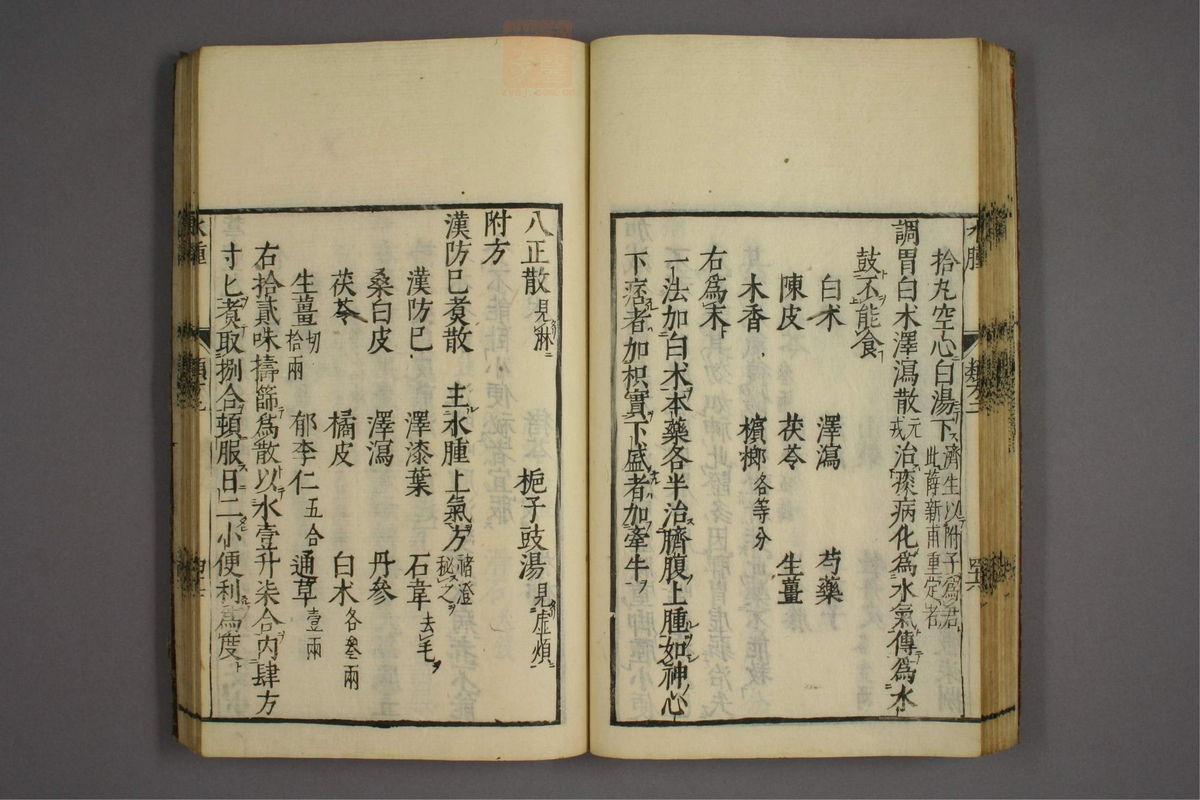 拾丸空心白湯下濟生以附子爲君
此薛新甫重定者
調胃白朮澤瀉散元戎治痰病化爲水氣傳爲水
鼓不能食
白朮　澤瀉　芍藥
陳皮　茯苓　生薑
木香　檳榔各等分
右爲末
一法加白朮本藥各半治臍腹上腫如神心
下痞者加枳實下盛者加牽牛
八正散見淋　梔子豉湯見虛煩
附方
漢防巳煑散　主水腫上氣方褚澄秘之
漢防巳　澤漆葉　石韋去毛
桑白皮　澤瀉　丹參
茯苓　橘皮　白朮各叄兩
生薑切拾兩　郁李仁五合　通草壹兩
右拾貳味擣篩爲散以水壹升柒合内肆方
寸匕煑取捌合頓服日二小便利爲度
水腫